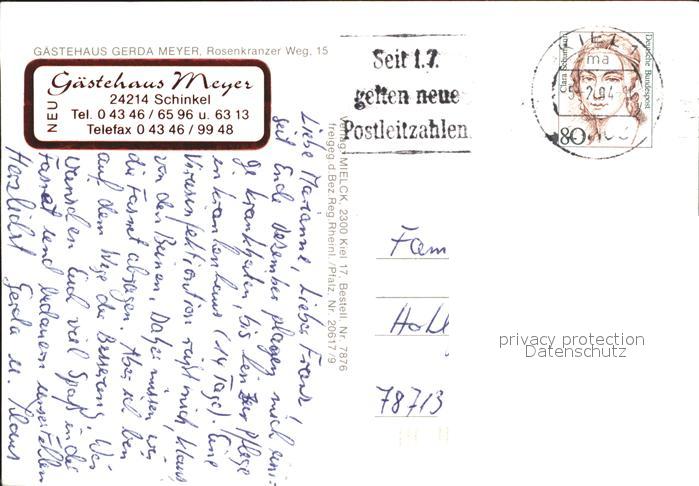 GÄSTEHAUS GERDA MEYER, Rosenkranzer Weg, 15
NEU
Gästehaus Meyer
24214 Schinkel
Tel. 0 43 46 / 65 96 u. 63 13
Telefax 0 43 46 / 99 48
Seit 1.7.
gelten neue
Postleitzahlen
KIEL 1
ma
Clara Schumann
Deutsche Bundespost
80
Liebe Marianne, Lieber Franz!
seit Ende Dezember plagen mich eini-
ge Krankheiten, bis hin zur Pflege
im Krankenhaus (14 Tage). Eine
Virusinfektion reißt mich, Klaus
von den Beinen. Daher müssen wir
die Fasnet absagen. Aber ich bin
auf dem Wege der Besserung. Wir
wünschen Euch viel Spaß in der
Fasnet und bedauern unser Fehlen
Herzlichst Gerda u. Klaus
Verlag: MIELCK, 2300 Kiel 17, Bestell. Nr. 7876
freigeg.d.Bez.Reg.Rheinl./Pfalz, Nr. 20617/9
Fam
Hohl
78713
privacy protection
Datenschutz